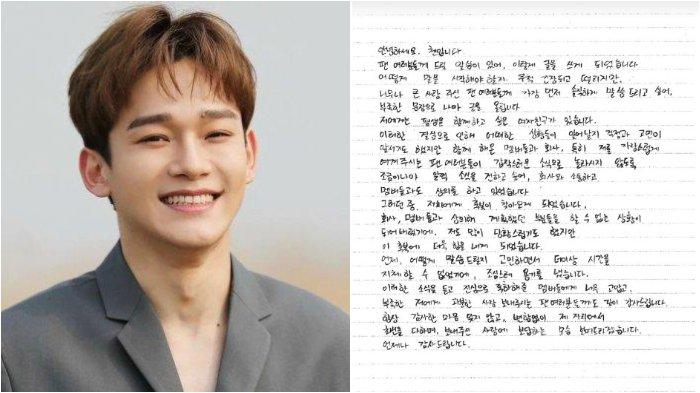 안녕하세요. 첸입니다.
팬 여러분들께 드릴 말씀이 있어, 이렇게 글을 쓰게 되었습니다
어떻게 말을 시작해야 할지. 무척 긴장되고 떨리지만,
너무나 큰 사랑 주신 팬 여러분들께 가장 먼저 솔직하게 말씀 드리고 싶어.
부족한 문장으로 나마 글을 올립니다
저에게는 평생을 함께하고 싶은 여자친구가 있습니다.
이러한 결심으로 인해 어떠한 상황들이 일어날지 걱정과 고민이
앞서기도 했지만 함께 해온 멤버들과 회사, 특히 저를 자랑스럽게
여겨주시는 팬 여러분들이 갑작스러운 소식으로 놀라시지 않도록,
조금이나마 일찍 소식을 전하고 싶어, 회사와 소통하고,
멤버들과도 상의를 하고 있었습니다
그러던 중. 저희에게 축복이 찾아오게 되었습니다.
회사, 멤버들과 상의해 계획했던 부분들을 할 수 없는 상황이
되어버렸기에. 저도 많이 당황스럽기도 했지만
이 축복에 더욱 힘을 내게 되었습니다.
언제, 어떻게 말씀드릴지 고민하면서 더이상 시간을
지체 할 수 없었기에, 조심스레 용기를 냈습니다.
이러한 소식을 듣고 진심으로 축하해준 멤버들에게 너무 고맙고.
부족한 저에게 과분한 사랑 보내주시는 팬 여러분들께도 깊이 감사드립니다.
항상 감사한 마음 잊지 않고, 변함없이 제 자리에서
최선을 다하며, 보내주신 사랑에 보답하는 모습 보여드리겠습니다.
언제나 감사드립니다.